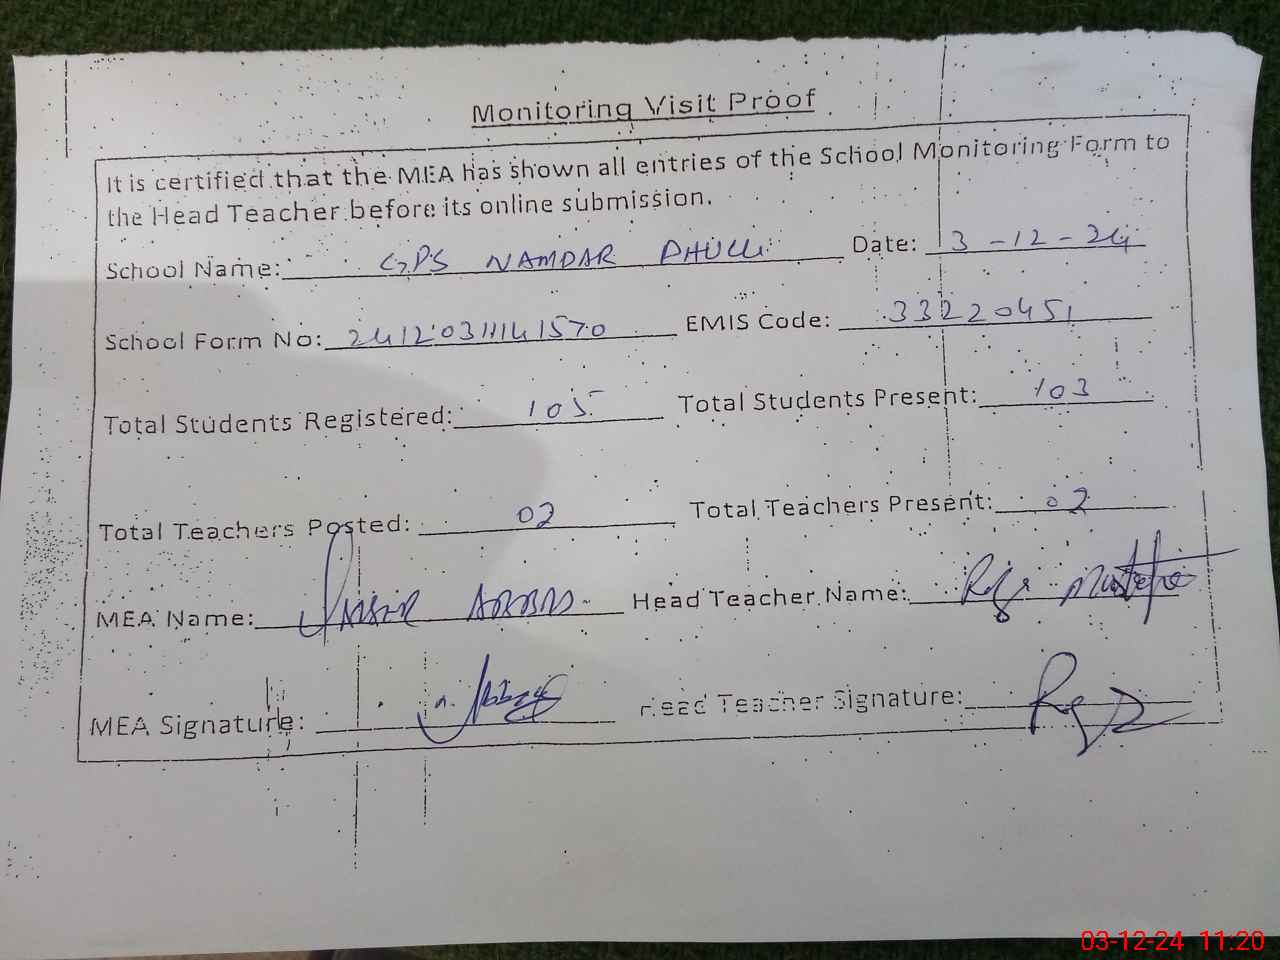 Monitoring Visit Proof
It is certified that the MEA has shown all entries of the School Monitoring Form to
the Head Teacher before its online submission.
School Name: GPS NAMDAR DHULLI Date: 3-12-24
School Form No: 241203111141570 EMIS Code: 33220451
Total Students Registered: 105 Total Students Present: 103
Total Teachers Posted: 02 Total Teachers Present: 02
MEA Name: ABBAS Head Teacher Name: Mustafa
MEA Signature: Head Teacher Signature:
03-12-24 11:20